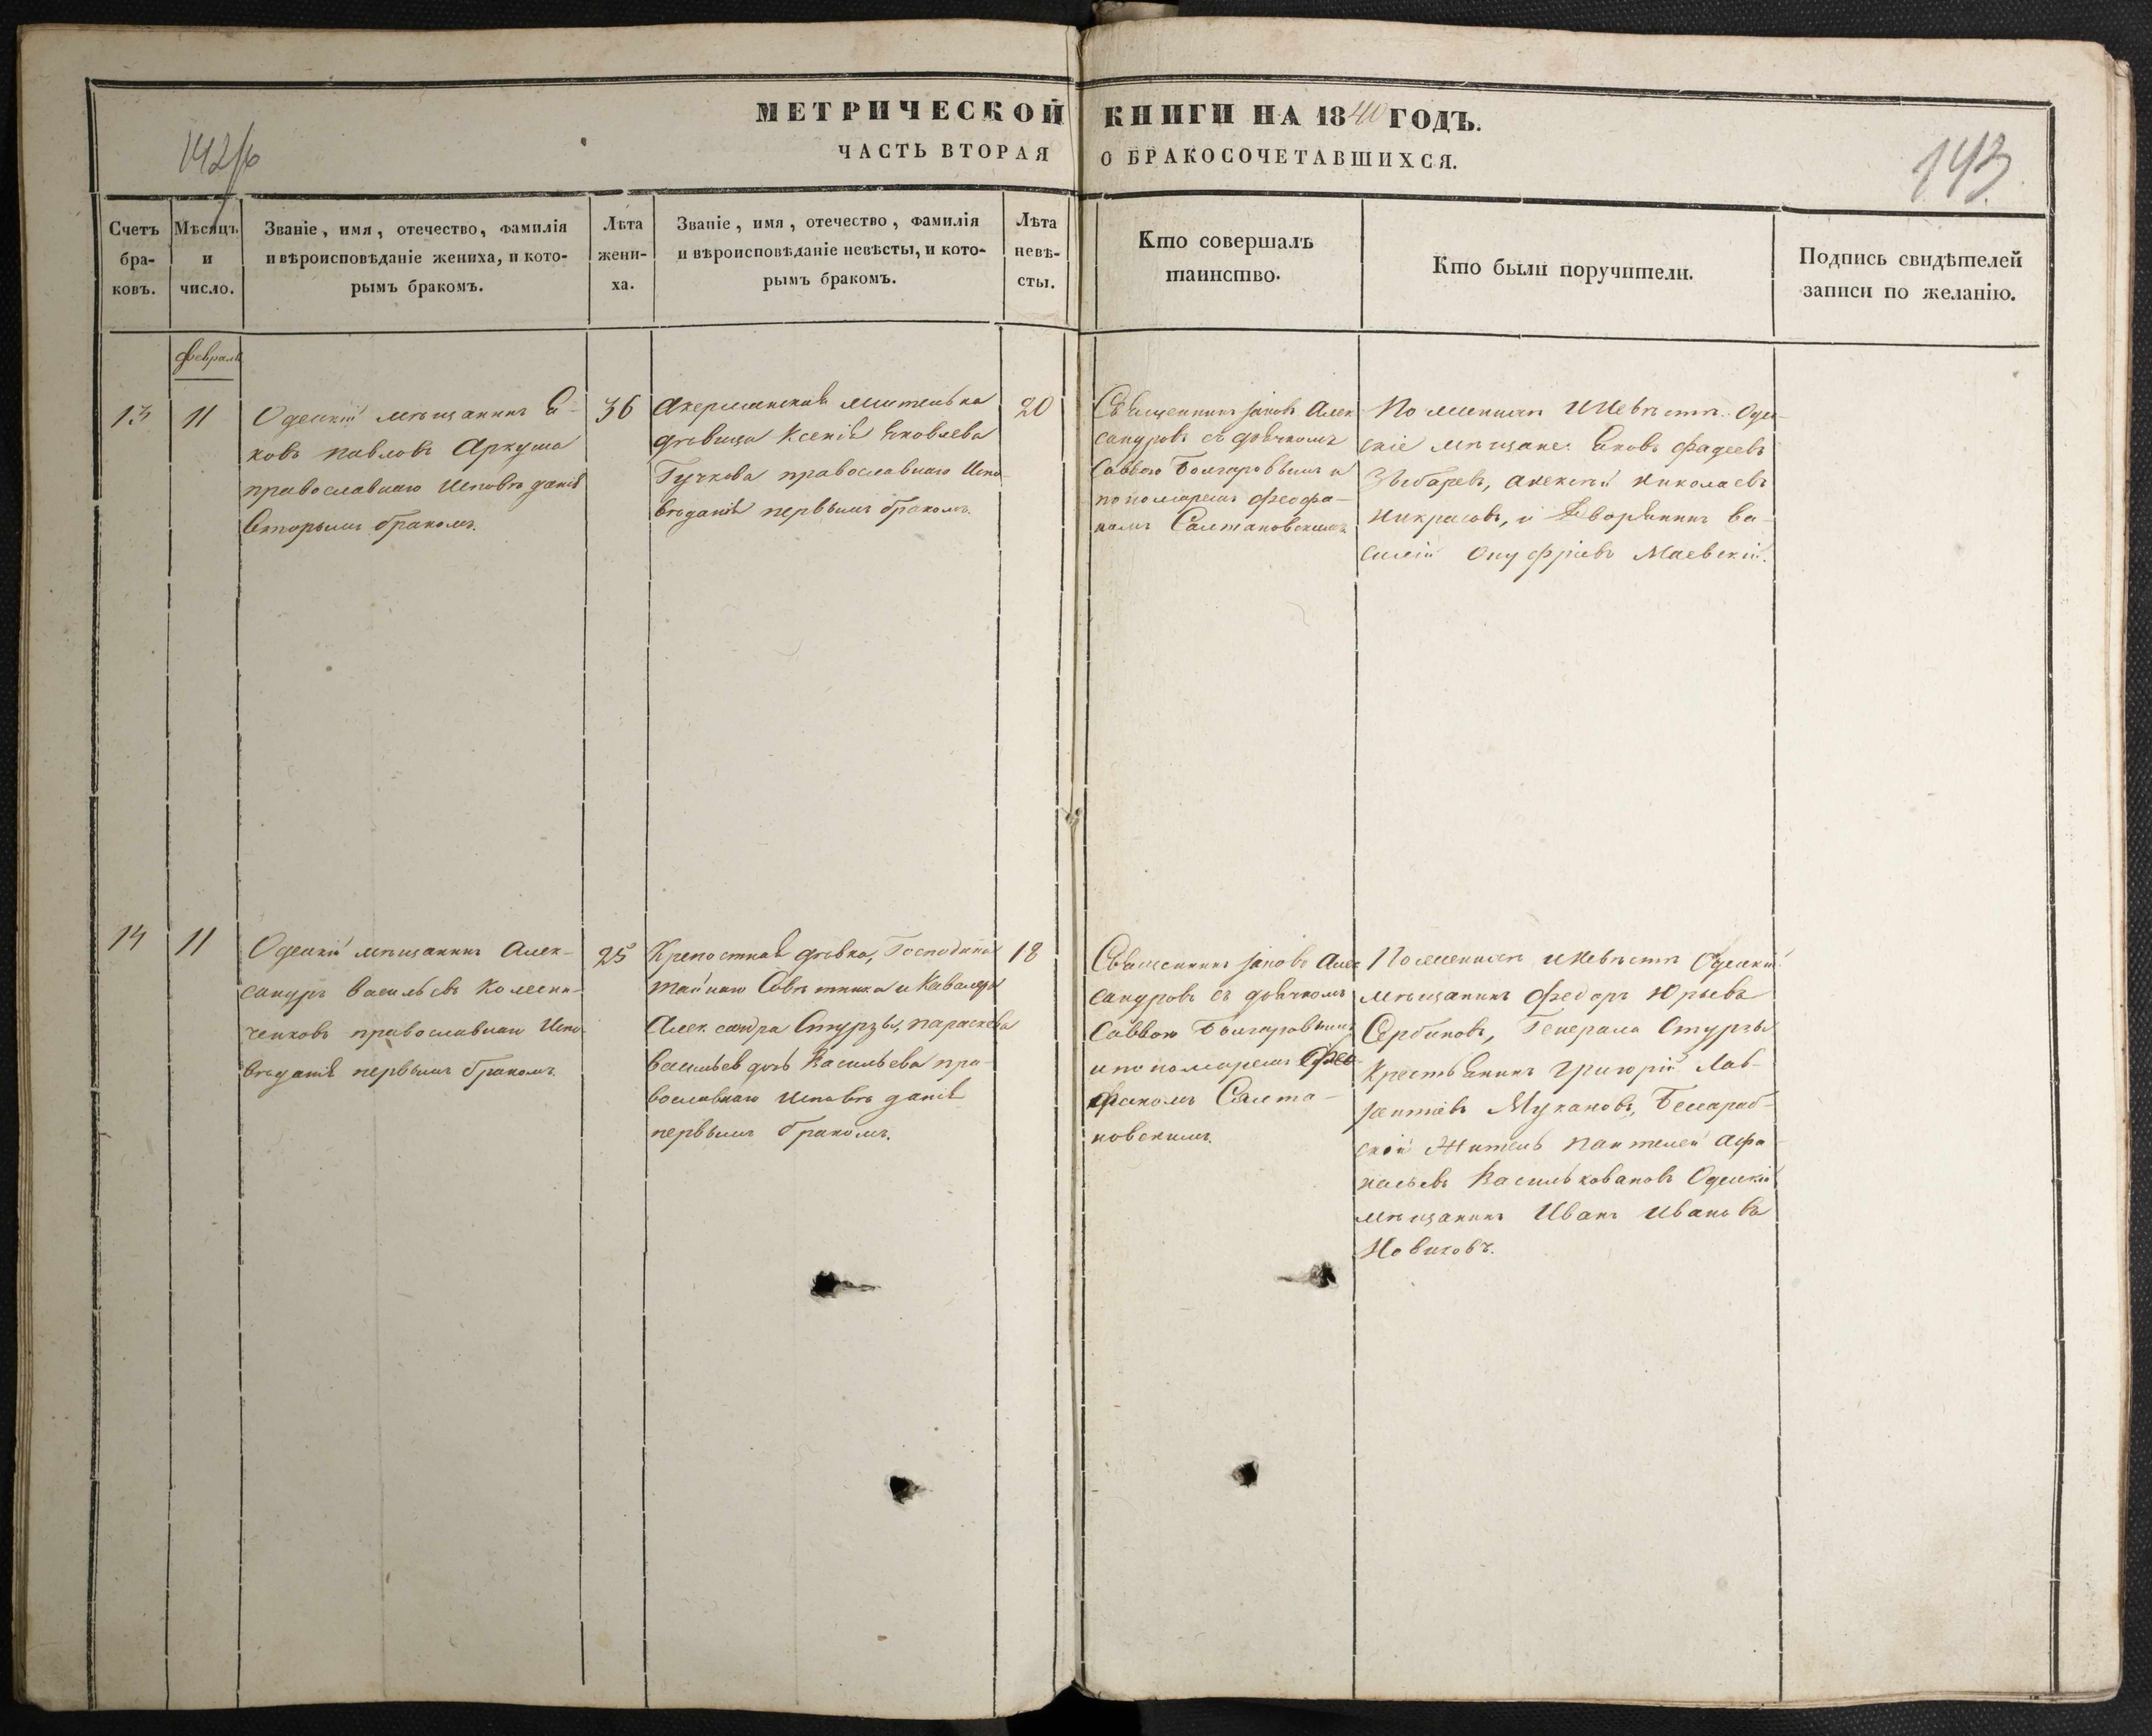 МЕТРИЧЕСКОЙ КНИГИ НА 1840 ГОДЪ.
ЧАСТЬ ВТОРАЯ О БРАКОСОЧЕТАВШИХСЯ.
143
Счетъ
бра-
ковъ.
Мѣсяцъ
и
число.
Званіе, имя, отечество, фамилія
и вѣроисповѣданіе жениха, и кото-
рымъ бракомъ.
Лѣта
жени-
ха.
Званіе, имя, отечество, фамилія
и вѣроисповѣданіе невѣсты, и кото-
рымъ бракомъ.
Лѣта
невѣ-
сты.
Кто совершалъ
таинство.
Кто были поручители.
Подпись свидѣтелей
записи по желанію.
февраль
13
11
Одескій мѣщанинъ Я-
ковъ павловъ Аркуша
православнаго Исповѣданія
вторымъ бракомъ.
36
Акерманская жителька
дѣвица Ксенія Яковлева
Гучкова православнаго Испо
вѣданія первымъ бракомъ.
20
Священникъ Іаковъ Алек
сандровъ съ дьячкомъ
Саввою Болгаровымъ и
пономаремъ Феофа-
номъ Салтановскимъ
По женихѣ и Невѣстѣ Одес-
скіе мѣщане: Яковъ Фадеевъ
Збетаревъ, Алексѣй Николаевъ
Никрасовъ, и Дворянинъ Ва-
силій Онуфріевъ Маевскій.
14
11
Одескій мѣщанинъ Алек-
сандръ Васильевъ Колесни-
ченковъ православнаго Испо
вѣданія первымъ бракомъ.
25
Крепостная дѣвка, Господина
тайнаго Совѣтника и Кавалера
Александра Стурзы, параскева
Васильева дочь Васильева пра-
вославнаго Исповѣданія
первымъ бракомъ.
18
Священникъ Іаковъ Алек
сандровъ съ дьячкомъ
Саввою Болгаровымъ
и пономаремъ Фео
фаномъ Салта-
новскимъ.
По женихѣ и невѣстѣ Одескій
мѣщанинъ Федоръ Юрьевъ
Сербиновъ, Генерала Стурзы
Крестьянинъ Григорій Лав-
рентіевъ Мукановъ, Бессараб-
скій Житель Пантелей Афа
насьевъ Васильковановъ Одескій
мѣщанинъ Иванъ Ивановъ
Новиковъ.